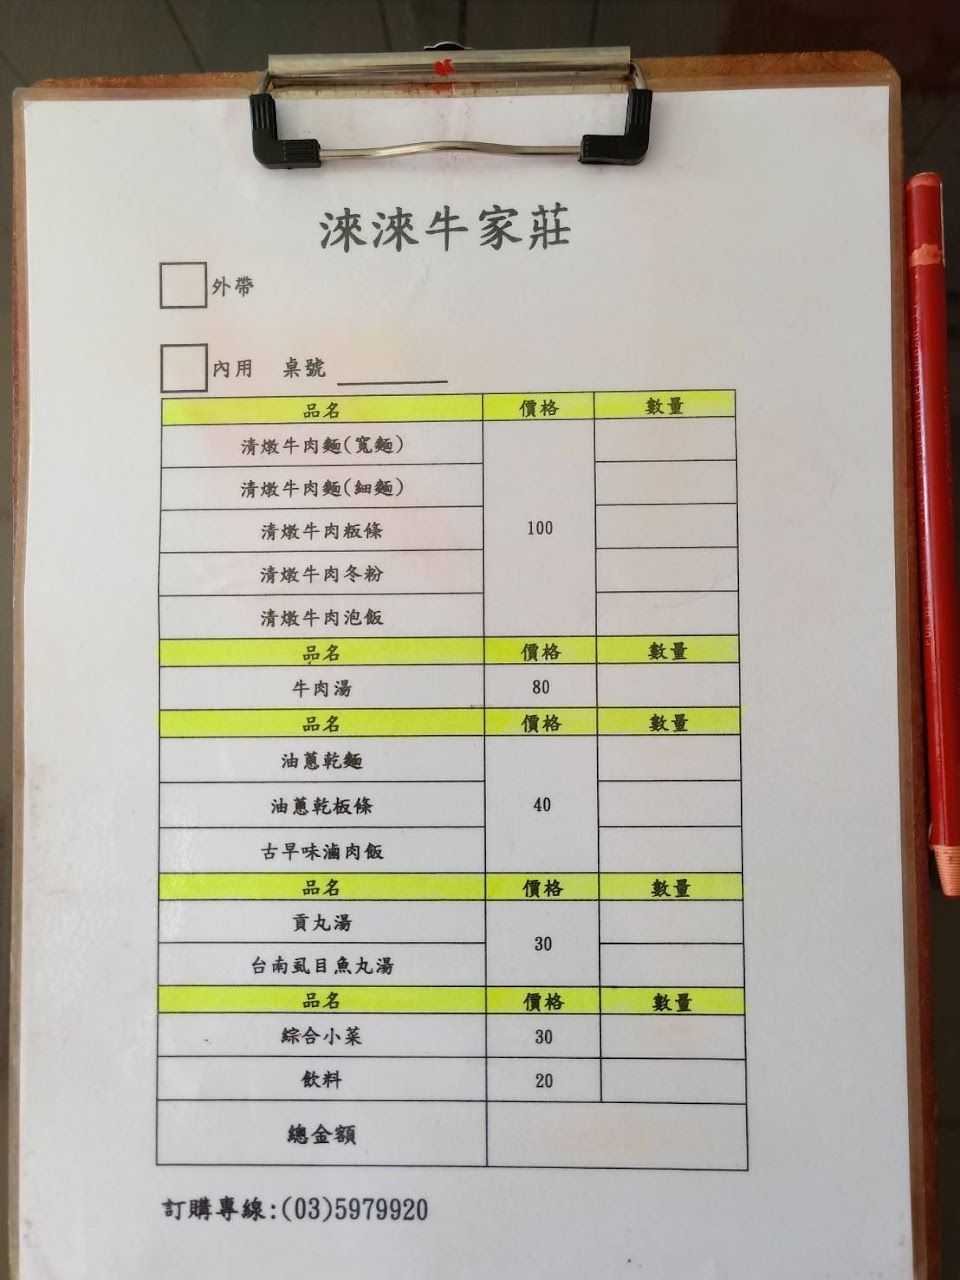 淶淶牛家莊
外帶
內用 桌號
品名 價格 數量
清燉牛肉麵(寬麵)
清燉牛肉麵(細麵)
清燉牛肉粄條 100
清燉牛肉冬粉
清燉牛肉泡飯
品名 價格 數量
牛肉湯 80
品名 價格 數量
油蔥乾麵
油蔥乾板條 40
古早味滷肉飯
品名 價格 數量
貢丸湯
30
台南虱目魚丸湯
品名 價格 數量
綜合小菜 30
飲料 20
總金額
訂購專線:(03)5979920